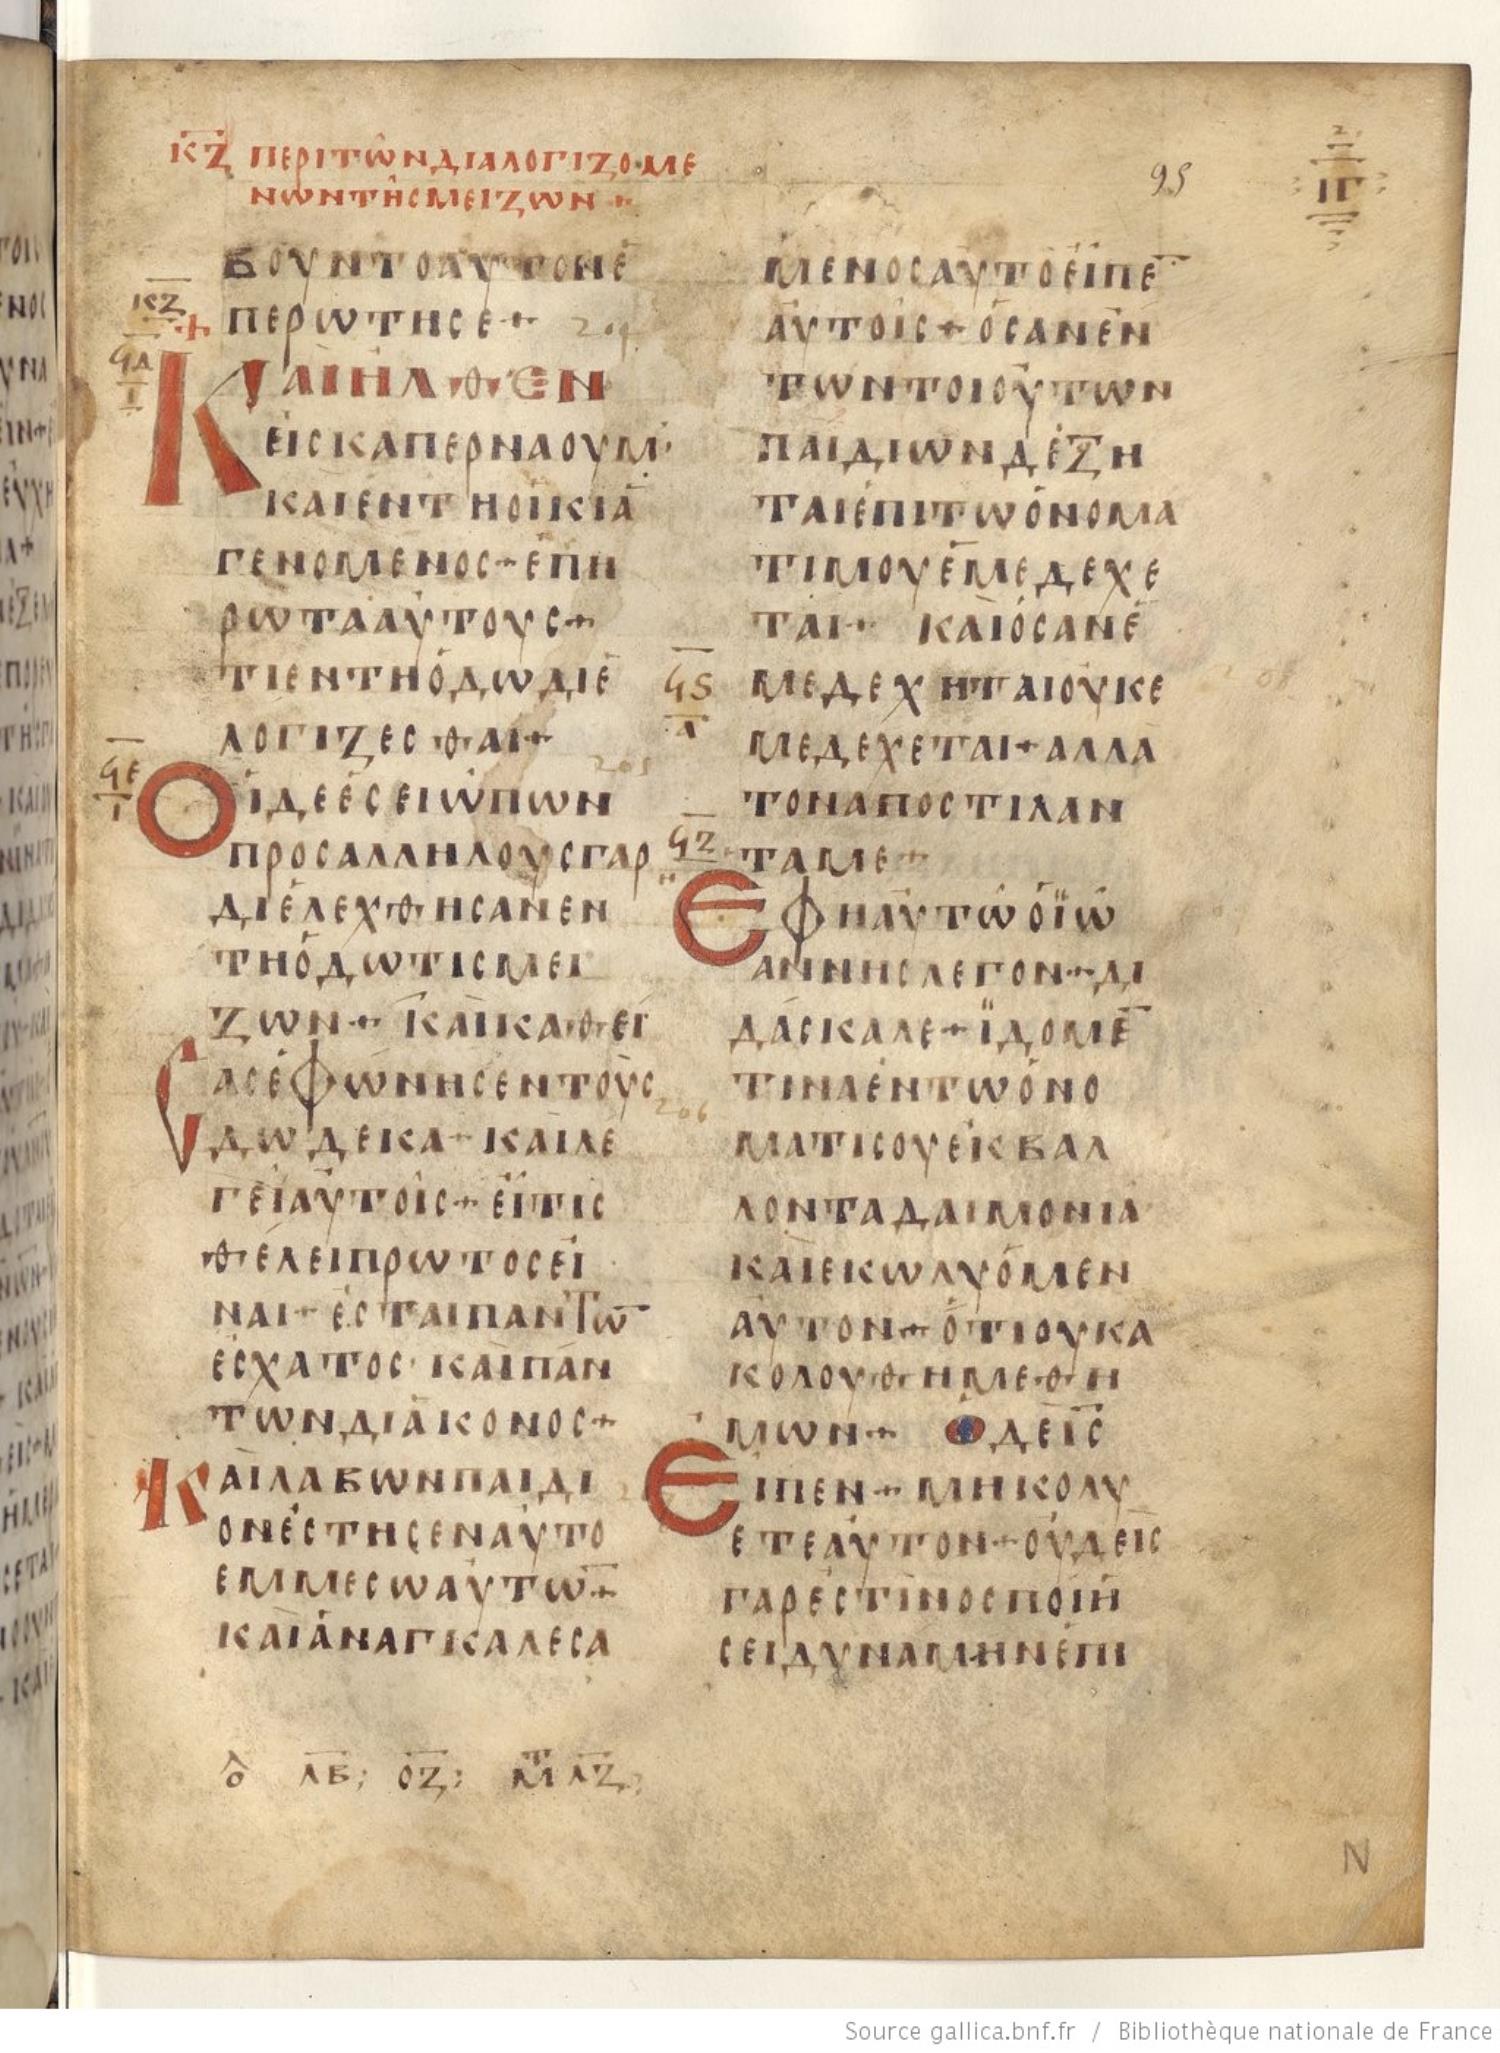 ΚΖ ΠΕΡΙΤΩΝΔΙΑΛΟΓΙΖΟΜΕ
ΝΩΝΤΗΣΜΕΙΖΩΝ
95
ΙΓ
ΒΟΥΝΤΟΑΥΤΟΝΕ
ΠΕΡΩΤΗСΕ+
ΚΖ
ϞΔ
Ι
204
ΚΑΙΗΛΘΕΝ
ΕΙСΚΑΠΕΡΝΑΟΥΜ·
ΚΑΙΕΝΤΗΟΙΚΙΑ
ΓΕΝΟΜΕΝΟС+ΕΠΗ
ΡΩΤΑΑΥΤΟΥС+
ΤΙΕΝΤΗΟΔΩΔΙΕ
ΛΟΓΙΖΕСΘΑΙ+
205
ϞΕ
Ι
ΟΙΔΕΕСΕΙΩΠΩΝ
ΠΡΟСΑΛΛΗΛΟΥСΓΑΡ
ΔΙΕΛΕΧΘΗСΑΝΕΝ
ΤΗΟΔΩΤΙСΜΕΙ
ΖΩΝ+ ΚΑΙΚΑΘΕΙ
СΑСΕΦΩΝΗСΕΝΤΟΥС
206
ΔΩΔΕΚΑ+ΚΑΙΛΕ
ΓΕΙΑΥΤΟΙС+ΕΙΤΙС
ΘΕΛΕΙΠΡΩΤΟСΕΙ
ΝΑΙ+ΕСΤΑΙΠΑΝΤΩ
ΕСΧΑΤΟС·ΚΑΙΠΑΝ
ΤΩΝΔΙΑΚΟΝΟС+
ΚΑΙΛΑΒΩΝΠΑΙΔΙ
ΟΝΕСΤΗСΕΝΑΥΤΟ
ΕΜΜΕСΩΑΥΤΩ+
ΚΑΙΑΝΑΓΚΑΛΕСΑ
ΜΕΝΟСΑΥΤΟΕΙΠΕ
ΑΥΤΟΙС+ΟСΑΝΕΝ
ΤΩΝΤΟΙΟΥΤΩΝ
ΠΑΙΔΙΩΝΔΕΞΗ
ΤΑΙΕΠΙΤΩΟΝΟΜΑ
ΤΙΜΟΥΕΜΕΔΕΧΕ
ΤΑΙ+ ΚΑΙΟСΑΝΕ
ϞS
Α
ΜΕΔΕΧΗΤΑΙΟΥΚΕ
ΜΕΔΕΧΕΤΑΙ+ΑΛΛΑ
ΤΟΝΑΠΟСΤΙΛΑΝ
ϞΖ
ΤΑΜΕ+
ΕΦΗΑΥΤΩΟΪΩ
ΑΝΝΗСΛΕΓΟΝ+ΔΙ
ΔΑСΚΑΛΕ+ΪΔΟΜΕ
ΤΙΝΑΕΝΤΩΟΝΟ
ΜΑΤΙСΟΥΕΚΒΑΛ
ΛΟΝΤΑΔΑΙΜΟΝΙΑ
ΚΑΙΕΚΩΛΥΟΜΕΝ
ΑΥΤΟΝ+ΟΤΙΟΥΚΑ
ΚΟΛΟΥΘΗΜΕΘΗ
ΜΩΝ+ ΟΔΕΙС
ΕΙΠΕΝ+ΜΗΚΟΛΥ
ΕΤΕΑΥΤΟΝ+ΟΥΔΕΙС
ΓΑΡΕСΤΙΝΟСΠΟΙΗ
СΕΙΔΥΝΑΜΗΝΕΠΙ
ΛΒ; ΟΖ; Μ ΛΖ;
N
Source gallica.bnf.fr / Bibliothèque nationale de France